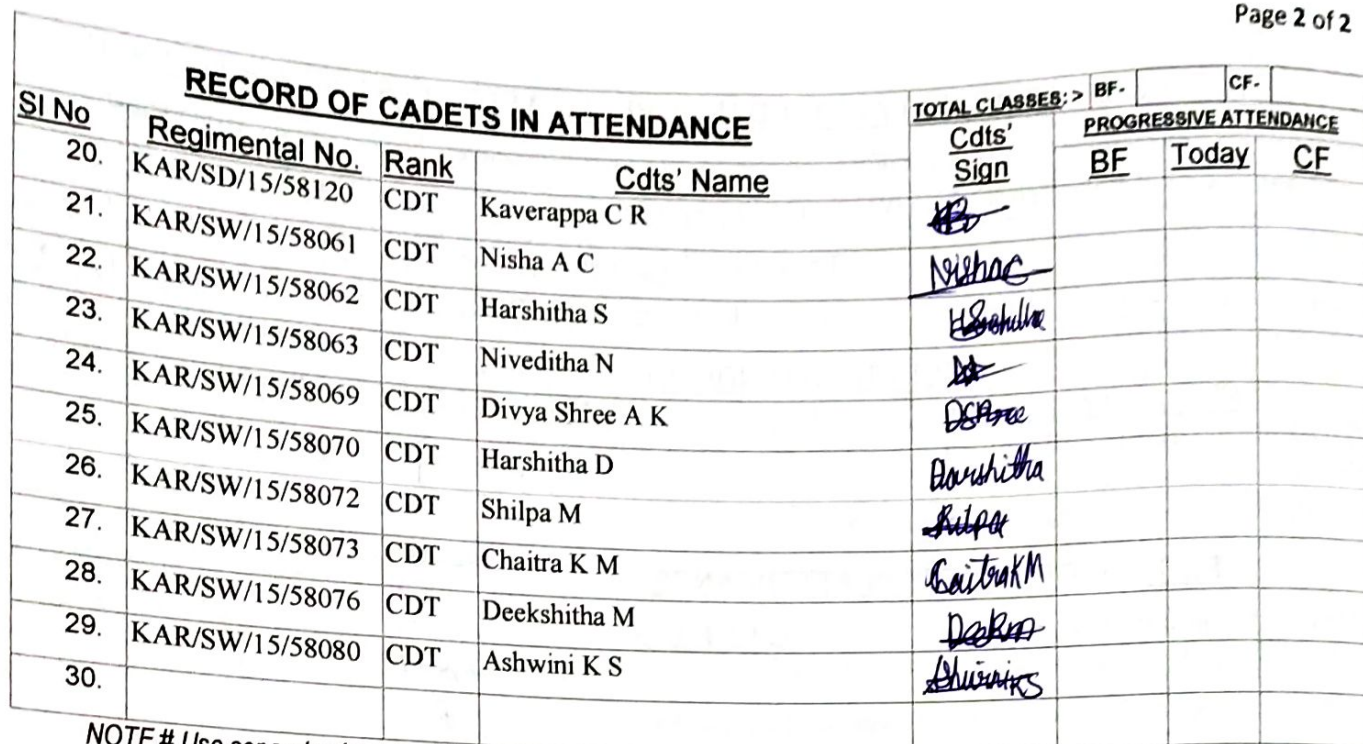 Page 2 of 2
RECORD OF CADETS IN ATTENDANCE
TOTAL CLASSES: > BF- CF-
PROGRESSIVE ATTENDANCE
Sl No Regimental No. Rank Cdts' Name Cdts' Sign BF Today CF
20. KAR/SD/15/58120 CDT Kaverappa C R
21. KAR/SW/15/58061 CDT Nisha A C NishaC
22. KAR/SW/15/58062 CDT Harshitha S
23. KAR/SW/15/58063 CDT Niveditha N
24. KAR/SW/15/58069 CDT Divya Shree A K DShree
25. KAR/SW/15/58070 CDT Harshitha D Harshitha
26. KAR/SW/15/58072 CDT Shilpa M Shilpa
27. KAR/SW/15/58073 CDT Chaitra K M CaitraKM
28. KAR/SW/15/58076 CDT Deekshitha M
29. KAR/SW/15/58080 CDT Ashwini K S AshwiniKS
30.
NOTE # Use